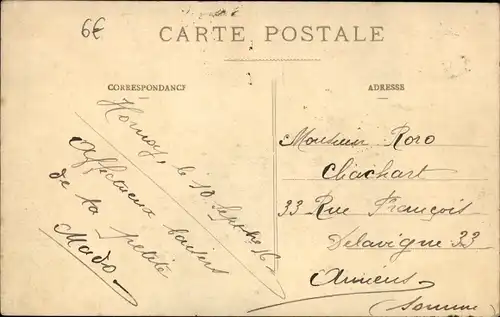 6€
CARTE POSTALE
CORRESPONDANCE
ADRESSE
Hornoy, le 18 Septbre 16
Affectueux baisers
de ta petite
Mado
Monsieur Roro
Chachart
33 Rue François
Delavigne 33
Amiens
Somme